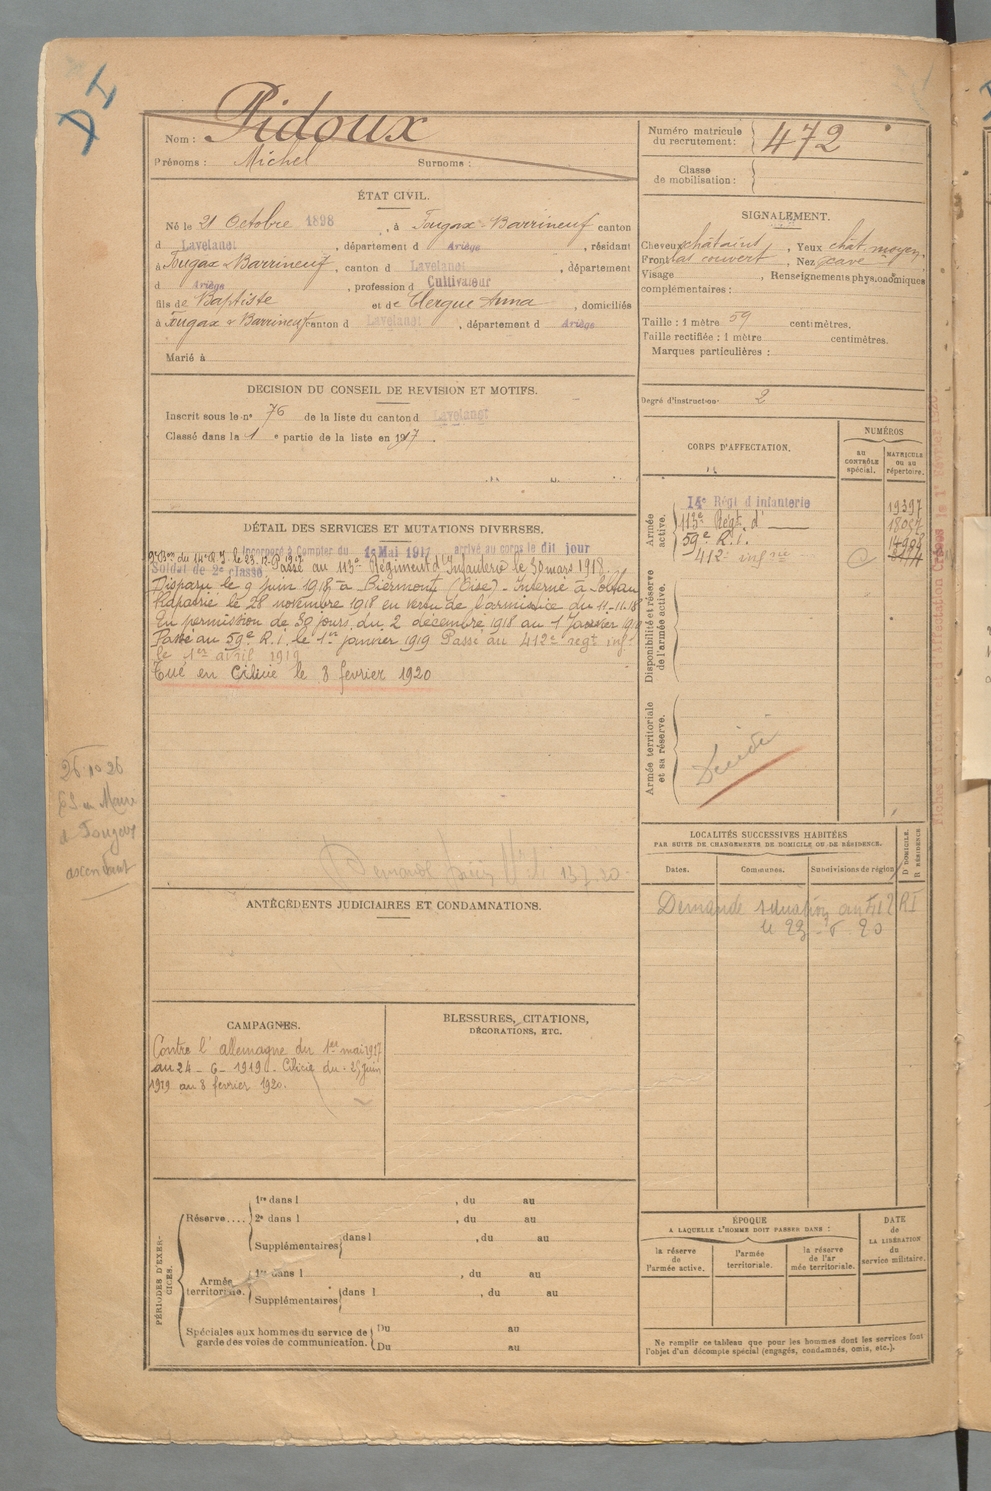 DI
Nom : Pidoux
Prénoms : Michel Surnoms :
Numéro matricule du recrutement : 472
Classe de mobilisation :
ÉTAT CIVIL.
Né le 21 Octobre 1898, à Fougax-Barrineuf canton
d Lavelanet, département d Ariège, résidant
à Fougax & Barrineuf, canton d Lavelanet, département
d Ariège, profession d Cultivateur
fils de Baptiste et de Clergue Anna, domiciliés
à Fougax & Barrineuf canton d Lavelanet, département d Ariège
Marié à
SIGNALEMENT.
Cheveux châtains, Yeux chat. moyen
Front couvert, Nez cave
Visage , Renseignements physionomiques
complémentaires :
Taille : 1 mètre 59 centimètres.
Taille rectifiée : 1 mètre centimètres.
Marques particulières :
Degré d'instruction : 2
DECISION DU CONSEIL DE REVISION ET MOTIFS.
Inscrit sous le nº 76 de la liste du canton d Lavelanet
Classé dans la 1 e partie de la liste en 1917.
CORPS D'AFFECTATION.
NUMÉROS
AU CONTRÔLE spécial.
MATRICULE ou au répertoire.
Armée active.
14e Régt d'Infanterie 19397
113e Régt d'
59e R.I.
412e infrie
Disponibilité et réserve de l'armée active.
Armée territoriale et sa réserve.
DÉTAIL DES SERVICES ET MUTATIONS DIVERSES.
Incorporé à Compter du 1er Mai 1917 arrivé au corps le dit jour
Soldat de 2e classe Passé au 113e Régiment d'Infanterie le 30 mars 1918.
Disparu le 9 juin 1918 à Biermont (Oise). Interné à
Rapatrié le 28 novembre 1918 en vertu de l'armistice du 11-11-18
En permission de 30 jours du 2 décembre 1918 au 1 Janvier
Passé au 59e R.I. le 1er janvier 1919 Passé au 412e regt inf.
le 1er avril 1919
Tué en Cilicie le 8 février 1920
ascendant
13-7-20
LOCALITÉS SUCCESSIVES HABITÉES
PAR SUITE DE CHANGEMENTS DE DOMICILE OU DE RÉSIDENCE.
D DOMICILE.
R RÉSIDENCE
Dates. Communes. Subdivisions de région
Demande situation au 412 RI
le 23 - 6 20
ANTÉCÉDENTS JUDICIAIRES ET CONDAMNATIONS.
CAMPAGNES.
Contre l'allemagne du 1er mai 1917
au 24 - 6 - 1919. Cilicie du 25 juin
1919 au 8 février 1920.
BLESSURES, CITATIONS,
DÉCORATIONS, ETC.
PÉRIODES D'EXERCICES.
Réserve....
1re dans l , du au
2e dans l , du au
Supplémentaires dans l , du au
Armée territoriale.
1re dans l , du au
Supplémentaires dans l , du au
Spéciales aux hommes du service de
garde des voies de communication.
Du au
Du au
ÉPOQUE
A LAQUELLE L'HOMME DOIT PASSER DANS :
la réserve de l'armée active.
l'armée territoriale.
la réserve de l'ar mée territoriale.
DATE de LA LIBÉRATION du service militaire.
Ne remplir ce tableau que pour les hommes dont les services font
l'objet d'un décompte spécial (engagés, condamnés, omis, etc.).